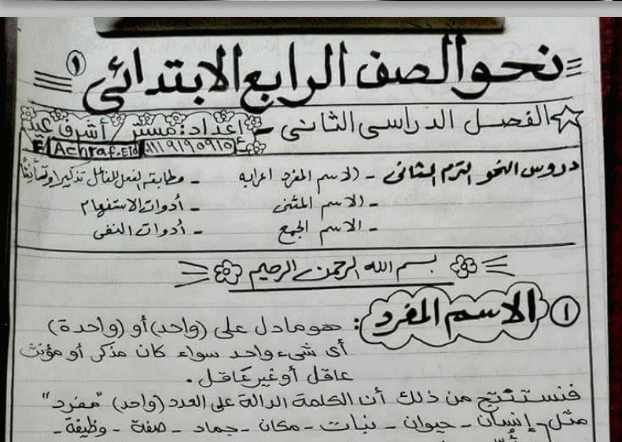 نحو الصف الرابع الابتدائي ١
الفصل الدراسى الثانى - إعداد: مستر / أشرف عيد
F/ Achraf.Eid ٠١١٩١٩٥٩١٥
دروس النحو الترم الثانى - الاسم المفرد إعرابه - مطابقة الفعل للفاعل تذكيرا وتأنيثا
- الاسم المثنى - أدوات الاستفهام
- الاسم الجمع - أدوات النفى
بسم الله الرحمن الرحيم
١ الاسم المفرد : هو ما دل على (واحد) أو (واحدة)
أى شىء واحد سواء كان مذكر أو مؤنث
عاقل أو غير عاقل .
فنستنتج من ذلك أن الكلمة الدالة على العدد (واحد) "مفرد"
مثل إنسان - حيوان - نبات - مكان - جماد - صفة - وظيفة -